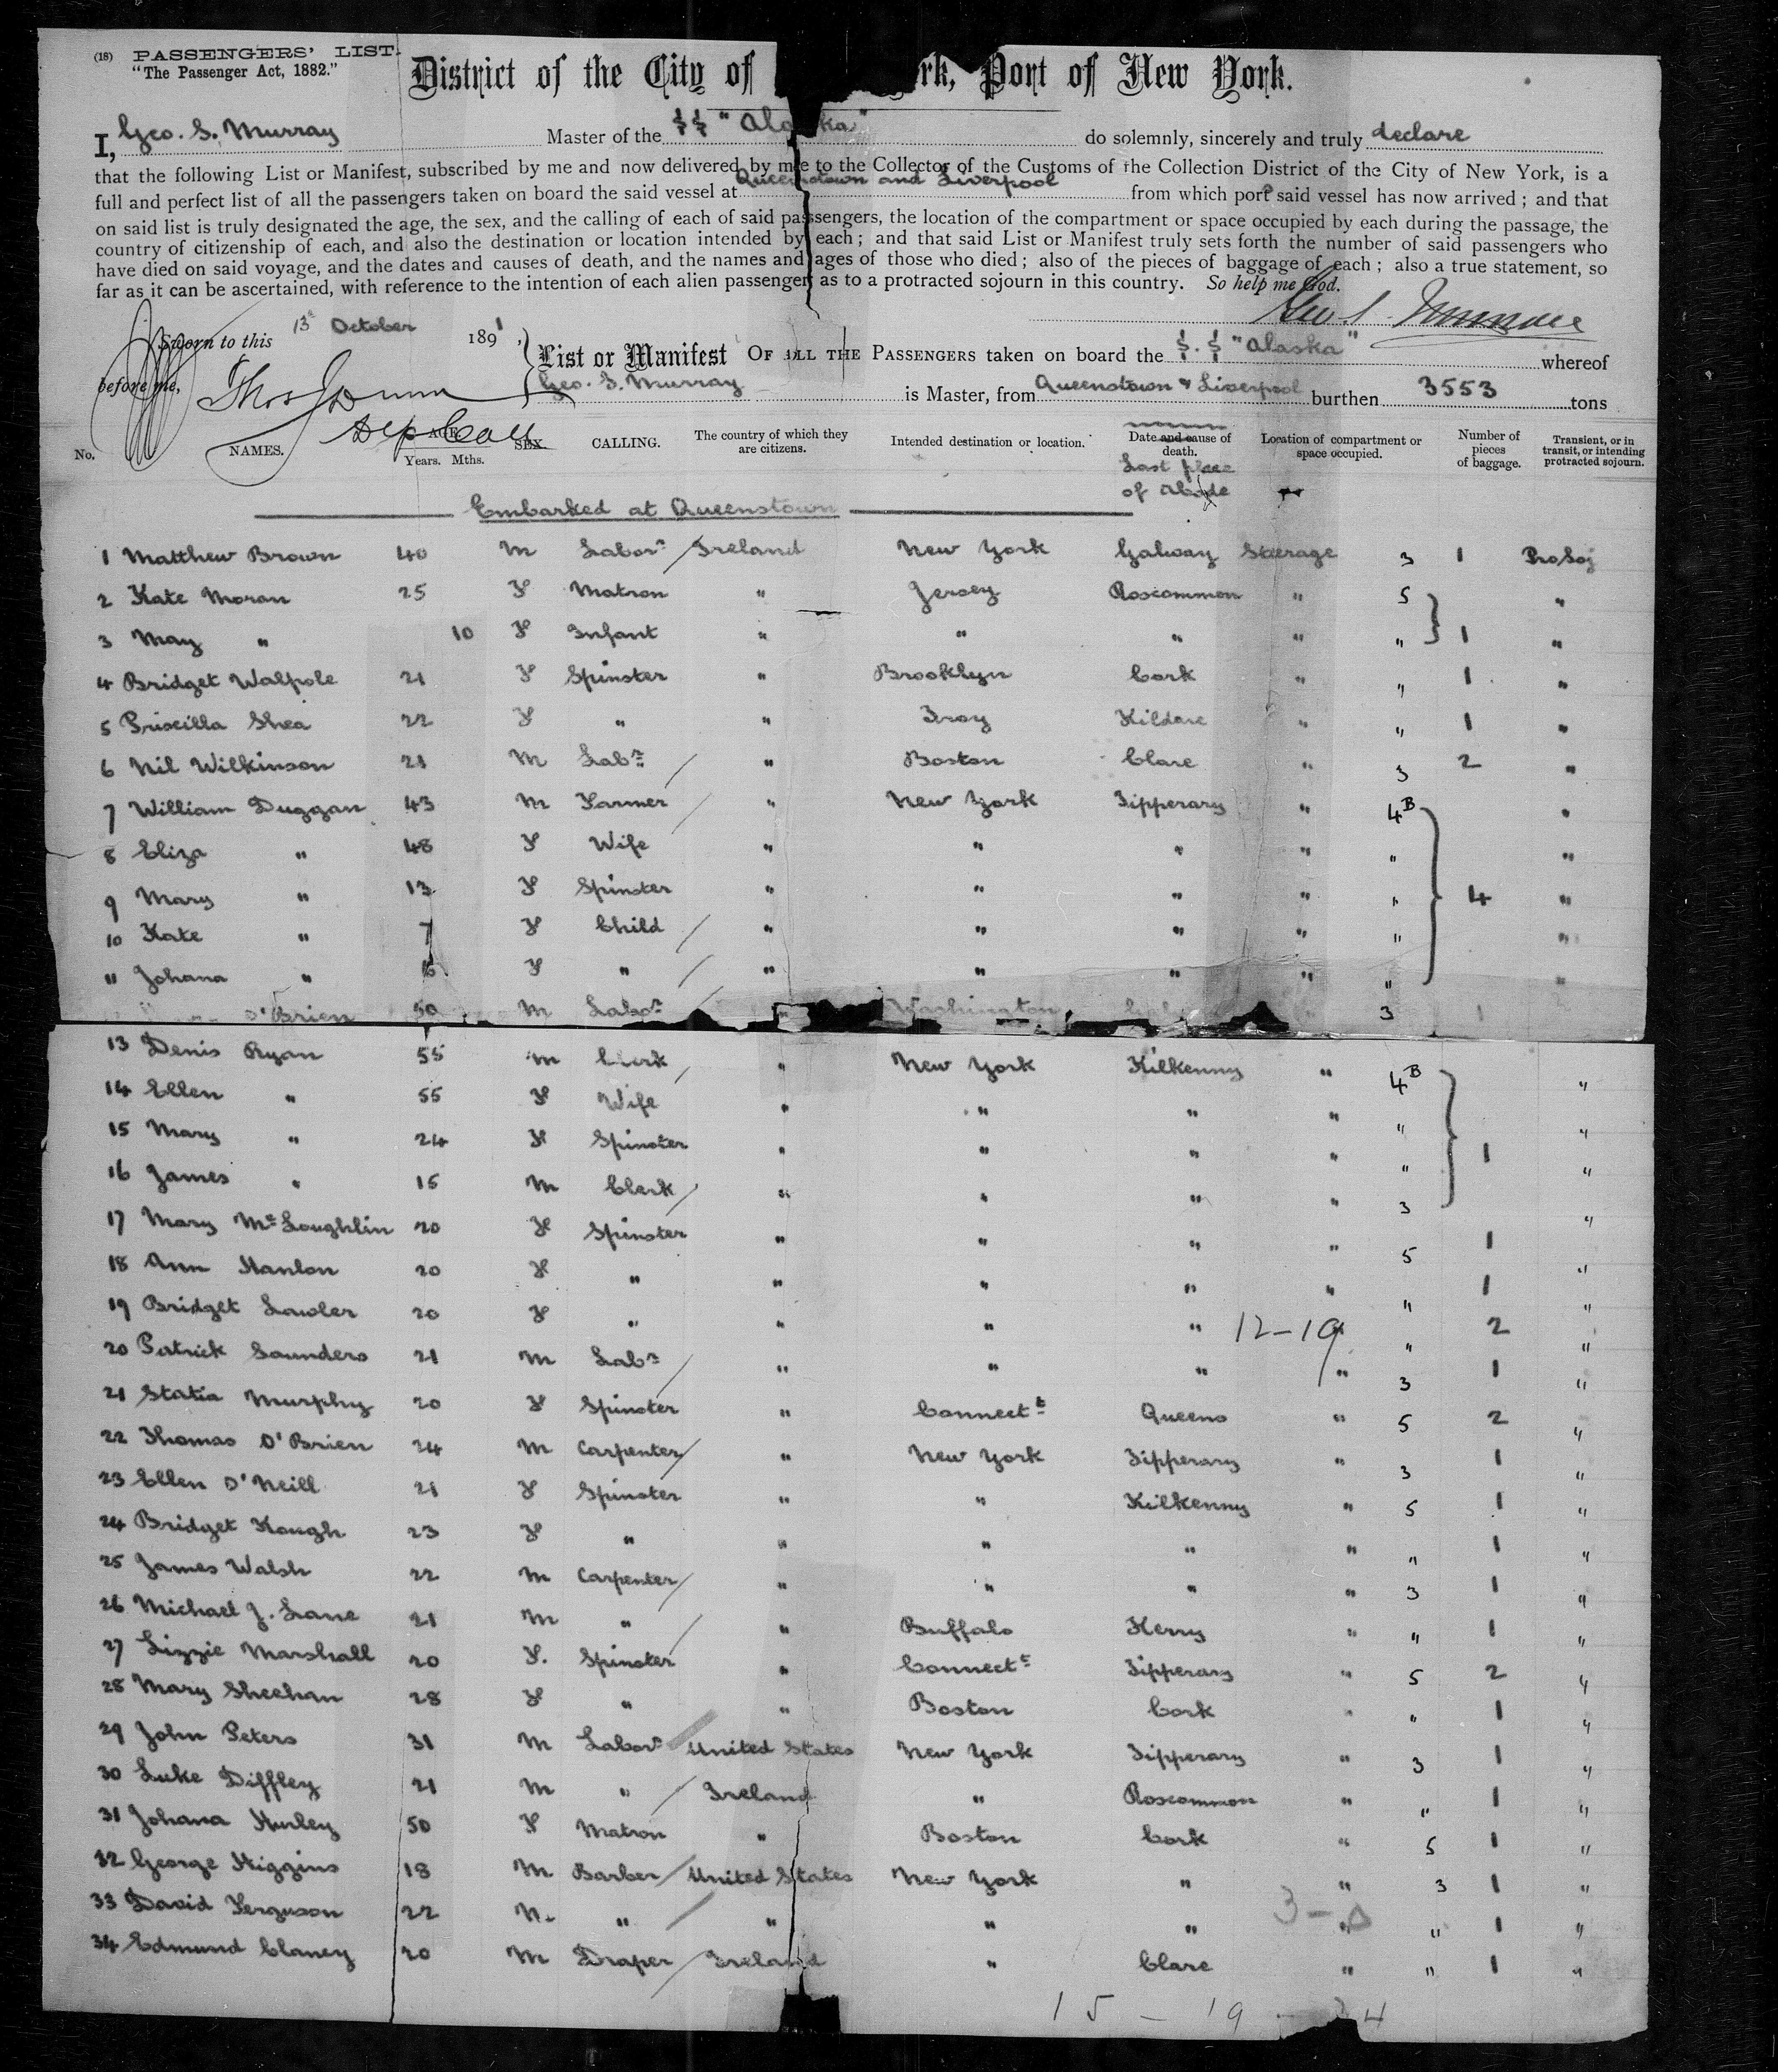 (18) PASSENGERS' LIST.
"The Passenger Act, 1882."
District of the City of rk, Port of New York.
I, Geo. S. Murray Master of the SS "Alaska" do solemnly, sincerely and truly declare
that the following List or Manifest, subscribed by me and now delivered by me to the Collector of the Customs of the Collection District of the City of New York, is a
full and perfect list of all the passengers taken on board the said vessel at Queenstown and Liverpool from which port said vessel has now arrived; and that
on said list is truly designated the age, the sex, and the calling of each of said passengers, the location of the compartment or space occupied by each during the passage, the
country of citizenship of each, and also the destination or location intended by each; and that said List or Manifest truly sets forth the number of said passengers who
have died on said voyage, and the dates and causes of death, and the names and ages of those who died; also of the pieces of baggage of each; also a true statement, so
far as it can be ascertained, with reference to the intention of each alien passenger as to a protracted sojourn in this country. So help me God.
Geo S. Murray
Sworn to this 13th October 1891,
before me,
List or Manifest OF ALL THE PASSENGERS taken on board the S.S "Alaska" whereof
Geo. S. Murray is Master, from Queenstown & Liverpool burthen 3553 tons
Dep Coll
No. NAMES. AGE. Years. Mths. SEX. CALLING. The country of which they are citizens. Intended destination or location. Date and cause of death. Location of compartment or space occupied. Number of pieces of baggage. Transient, or in transit, or intending protracted sojourn.
Last place
of Abode
Embarked at Queenstown
1 Matthew Brown 40 M Labor / Ireland New York Galway Steerage 3 1 ProSoj
2 Kate Moran 25 F Matron " Jersey Roscommon " 5 "
3 May " 10 F Infant " " " " " 1 "
4 Bridget Walpole 21 F Spinster " Brooklyn Cork " " 1 "
5 Priscilla Shea 22 F " " Troy Kildare " " 1 "
6 Nil Wilkinson 21 M Labr / " Boston Clare " 3 2 "
7 William Duggan 43 M Farmer / " New York Tipperary " 4B "
8 Eliza " 48 F Wife " " " " " "
9 Mary " 13 F Spinster " " " " " 4 "
10 Kate " 7 F Child / " " " " " "
11 Johana " 6 F " / " " " " " "
O'Brien 50 M Labor / " Washington 3 1
13 Denis Ryan 55 M Clerk / " New York Kilkenny " 4B "
14 Ellen " 55 F Wife " " " " " "
15 Mary " 24 F Spinster " " " " " 1 "
16 James " 15 M Clerk / " " " " 3 "
17 Mary McLoughlin 20 F Spinster " " " " 5 1 "
18 Ann Hanlon 20 F " " " " " " 1 "
19 Bridget Lawler 20 F " " " " 12-19 " " 2 "
20 Patrick Saunders 21 M Labr / " " " " 3 1 "
21 Statia Murphy 20 F Spinster " Connectt Queens " 5 2 "
22 Thomas O'Brien 24 M Carpenter / " New York Tipperary " 3 1 "
23 Ellen O'Neill 21 F Spinster " " Kilkenny " 5 1 "
24 Bridget Keough 23 F " " " " " " 1 "
25 James Walsh 22 M Carpenter / " " " " 3 1 "
26 Michael J. Lane 21 M " / " Buffalo Kerry " " 1 "
27 Lizzie Marshall 20 F. Spinster " Connectt Tipperary " 5 2 "
28 Mary Sheehan 28 F " " Boston Cork " " 1 "
29 John Peters 31 M Labor / United States New York Tipperary " 3 1 "
30 Luke Diffley 21 M " / Ireland " Roscommon " " 1 "
31 Johana Hurley 50 F Matron " Boston Cork " 5 1 "
32 George Higgins 18 M Barber / United States New York " " 3 1 "
33 David Ferguson 22 M. " / " " " " " 1 "
34 Edmund Clancy 20 M Draper / Ireland " Clare " " 1 "
15 - 19 - 4